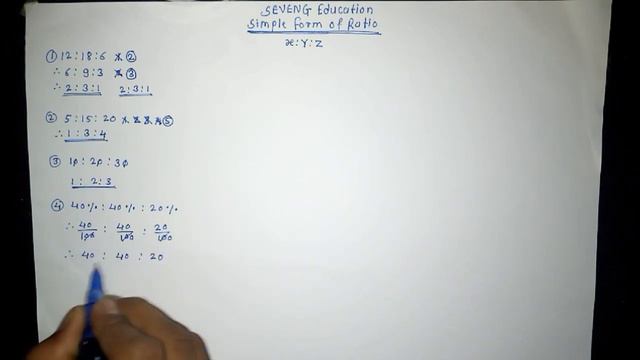 SEVENG Education
Simple form of Ratio
x:Y:Z
① 12:18:6 ②
∴ 6:9:3 ③
∴ 2:3:1 2:3:1
② 5:15:20 ⑤
∴ 1:3:4
③ 10:20:30
1:2:3
④ 40%:40%:20%
∴ 40/100 : 40/100 : 20/100
∴ 40 : 40 : 20